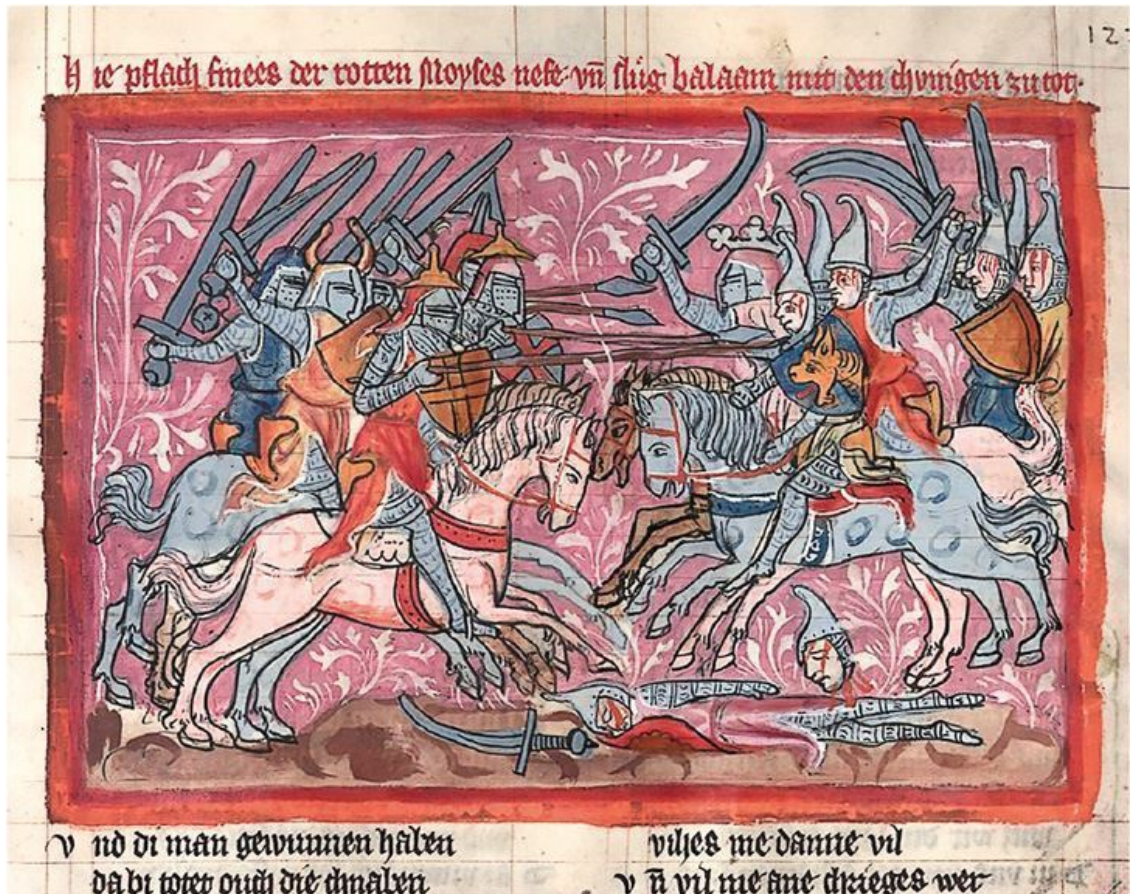 12
Hie pflach finees der rotten Moyses nefe vn̄ slůg balaam mit den chvnigen zu tot.
vnd di man gewunnen haben
da bi totet ouch die chnaben
vihes me danne vil
vn̄ vil me ane chrieges wer